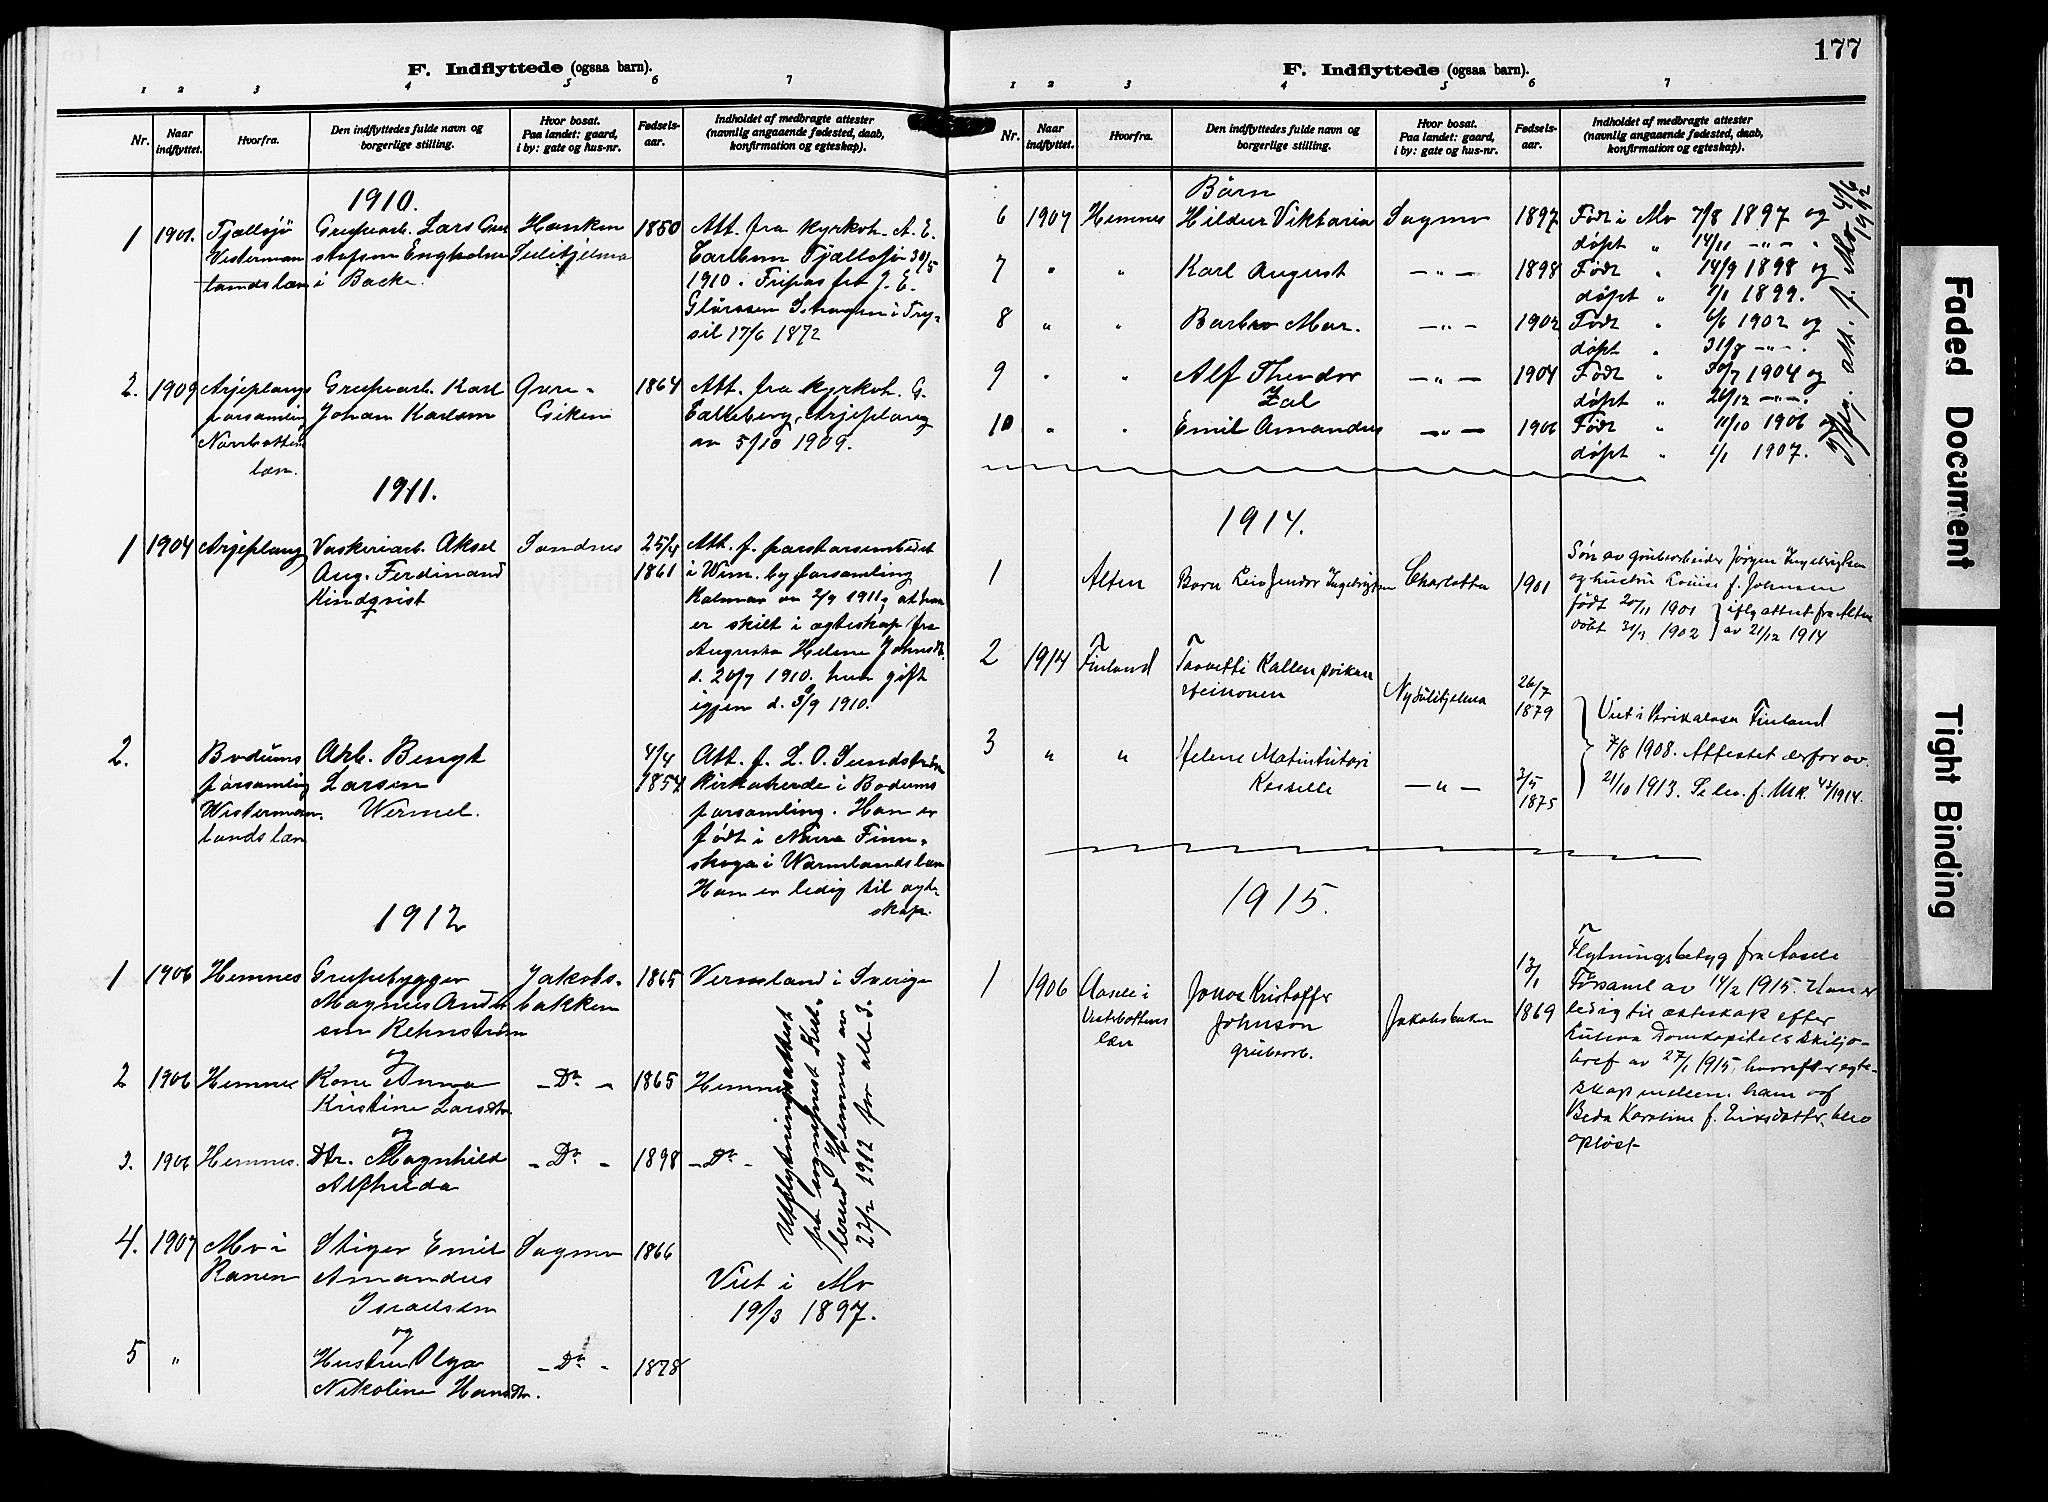 F. Indflyttede (ogsaa barn).
1 2 3 4 5 6 7
Nr. Naar indflyttet. Hvorfra. Den indflyttedes fulde navn og borgerlige stilling. Hvor bosat. Paa landet: gaard, i by: gate og hus-nr. Fødsels-aar. Indholdet af medbragte attester (navnlig angaaende fødested, daab, konfirmation og egteskap).
1910.
1 1901. Tjællsjö Grupearb. Lars Gus Hanken 1850 Att. fra kyrkoh. A. E.
Vesterman stafson Engholm Sulitjelma Carlbom Tjællsjø 30/5
lands læn i Backe. 1910. Fripas fra J. E.
sil 17/6 1872
2. 1909 Arjeplougs Grupearb. Karl 1864 Att. fra kyrkoh. G.
forsamling Johan Karlson Giken Calleberg, Arjeploug
Norrbotten av 5/10 1909.
læn.
1911.
1 1904 Arjeploug Vaskeriarb. Aksel Sandnes 25/4 Att. f. pastorsembedet
Aug. Ferdinand 1861 i Wim. by forsamling
Kindqvist Kalmar av 2/9 1911, at han
er skilt i ægteskap fra
Augusta Helene Johnsdtr.
d. 20/7 1910. hun gift
igjen d. 3/9 1910.
2. Bodums Arb. Bengt 4/4 Att. f. L. O. Sundström
forsamling Larsen 1854 Kirkoherde i Bodums
Westerman. Wermel. forsamling. Han er
lands læn født i Norra Finn-
skoga i Warmlands læn
Han er ledig til ægte-
skap.
1912
1 1906 Hemnes Grupebygger Jakobs- 1865 Vermland i Sverige
Magnus Ander bakken
sen Rehnström
og
2 1906 Hemnes Kone Anna - Do - 1865 Hemnes
Kristine Larsdtr
og
3. 1906 Hemnes. Dtr. Magnhild - Do - 1898 - Do -
Alfhilda
Utflytningsattest
fra sogneprest Kest-
lerud Hemnes av
22/2 1912 for all 3.
4. 1907 Mo i Stiger Emil Sagmo 1866
Ranen Amandus Viet i Mo
Israelsen 19/3 1897.
og
5 " Hustru Olga - Do - 1878
Nikoline Hansdtr.
177
F. Indflyttede (ogsaa barn).
1 2 3 4 5 6 7
Nr. Naar indflyttet. Hvorfra. Den indflyttedes fulde navn og borgerlige stilling. Hvor bosat. Paa landet: gaard, i by: gate og hus-nr. Fødsels-aar. Indholdet af medbragte attester (navnlig angaaende fødested, daab, konfirmation og egteskap).
Börn
6 1907 Hemnes Hildur Viktoria Sagmo 1897 Født i Mo 7/8 1897 og
døpt " 14/11 - " -
7 " " Karl August - " - 1898 Født " 14/9 1898 og
døpt " 1/1 1899.
8 " " Barbro Mar. - " - 1902 Født " 6/6 1902 og
døpt " 31/8 - " -
9 " " Alf Theodor - " - 1904 Født " 30/7 1904 og
Zal døpt " 26/12 - " -
10 " " Emil Amandus - " - 1906 Født " 11/10 1906 og
døpt " 1/1 1907.
att. f. Mo 4/6 1912
1914.
1 Alten Barn Leif Jendor Ingebrigtsen Charlotta 1901 Søn av grubearbeider Jørgen Ingebrigtsen
og hustru Louise f. Johnsen
født 20/11 1901 } iflg attest fra Alten
døbt 31/3 1902 } av 21/12 1914
2 1914 Finland
Nysulitjelma 26/7
1879 Viet i Finland
3 " " Helene 7/8 1908. Attestet derfor av
- " - 3/5 21/10 1913. Se lev. f. MK. 43/1914.
1875
1915.
1 1906 Aasele i Jonas Kristoffer Jakobsbaken 13/1 Flytningsbetyg fra Aasele
Vesterbottens Johnson 1869 Församl av 14/2 1915. Han er
læn grubearb. ledig til ækteskap efter
Luleaa Domkapitels Skiljo-
bref av 27/1 1915, hvorefter egte-
skap mellem ham og
Beda Karoline f. Eriksdatter blev
opløst
Faded Document
Tight Binding